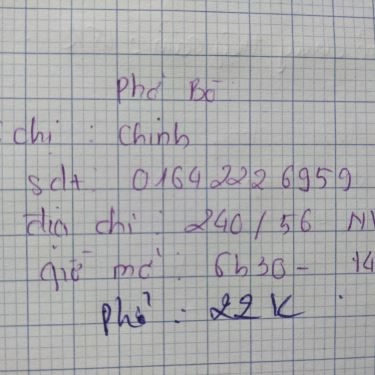 Phở Bò
chị : Chinh
sdt: 0164 222 6959
địa chỉ : 240 / 56
giờ mở : 6h30 - 14
phở : 22K